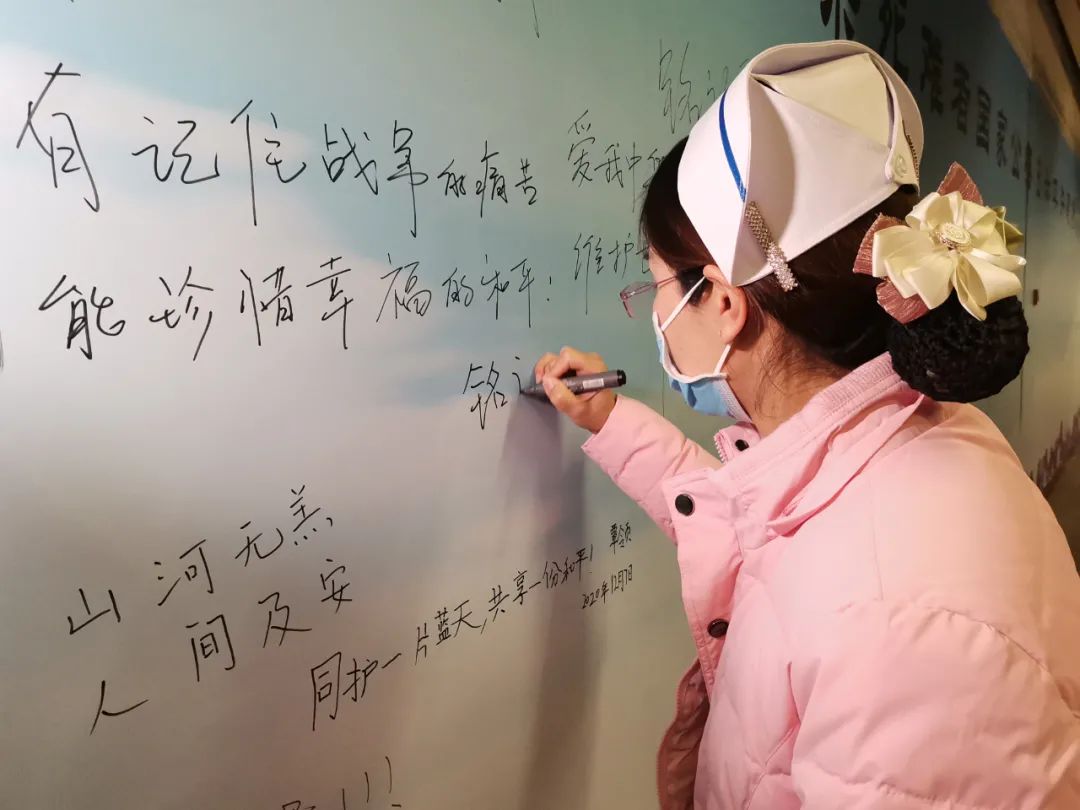 铭
有记住战争的痛苦
能珍惜幸福的和平!
爱我中
维护
铭
山河无恙
人间及安
同护一片蓝天,共享一份和平!
2020年12月7日
国家公祭